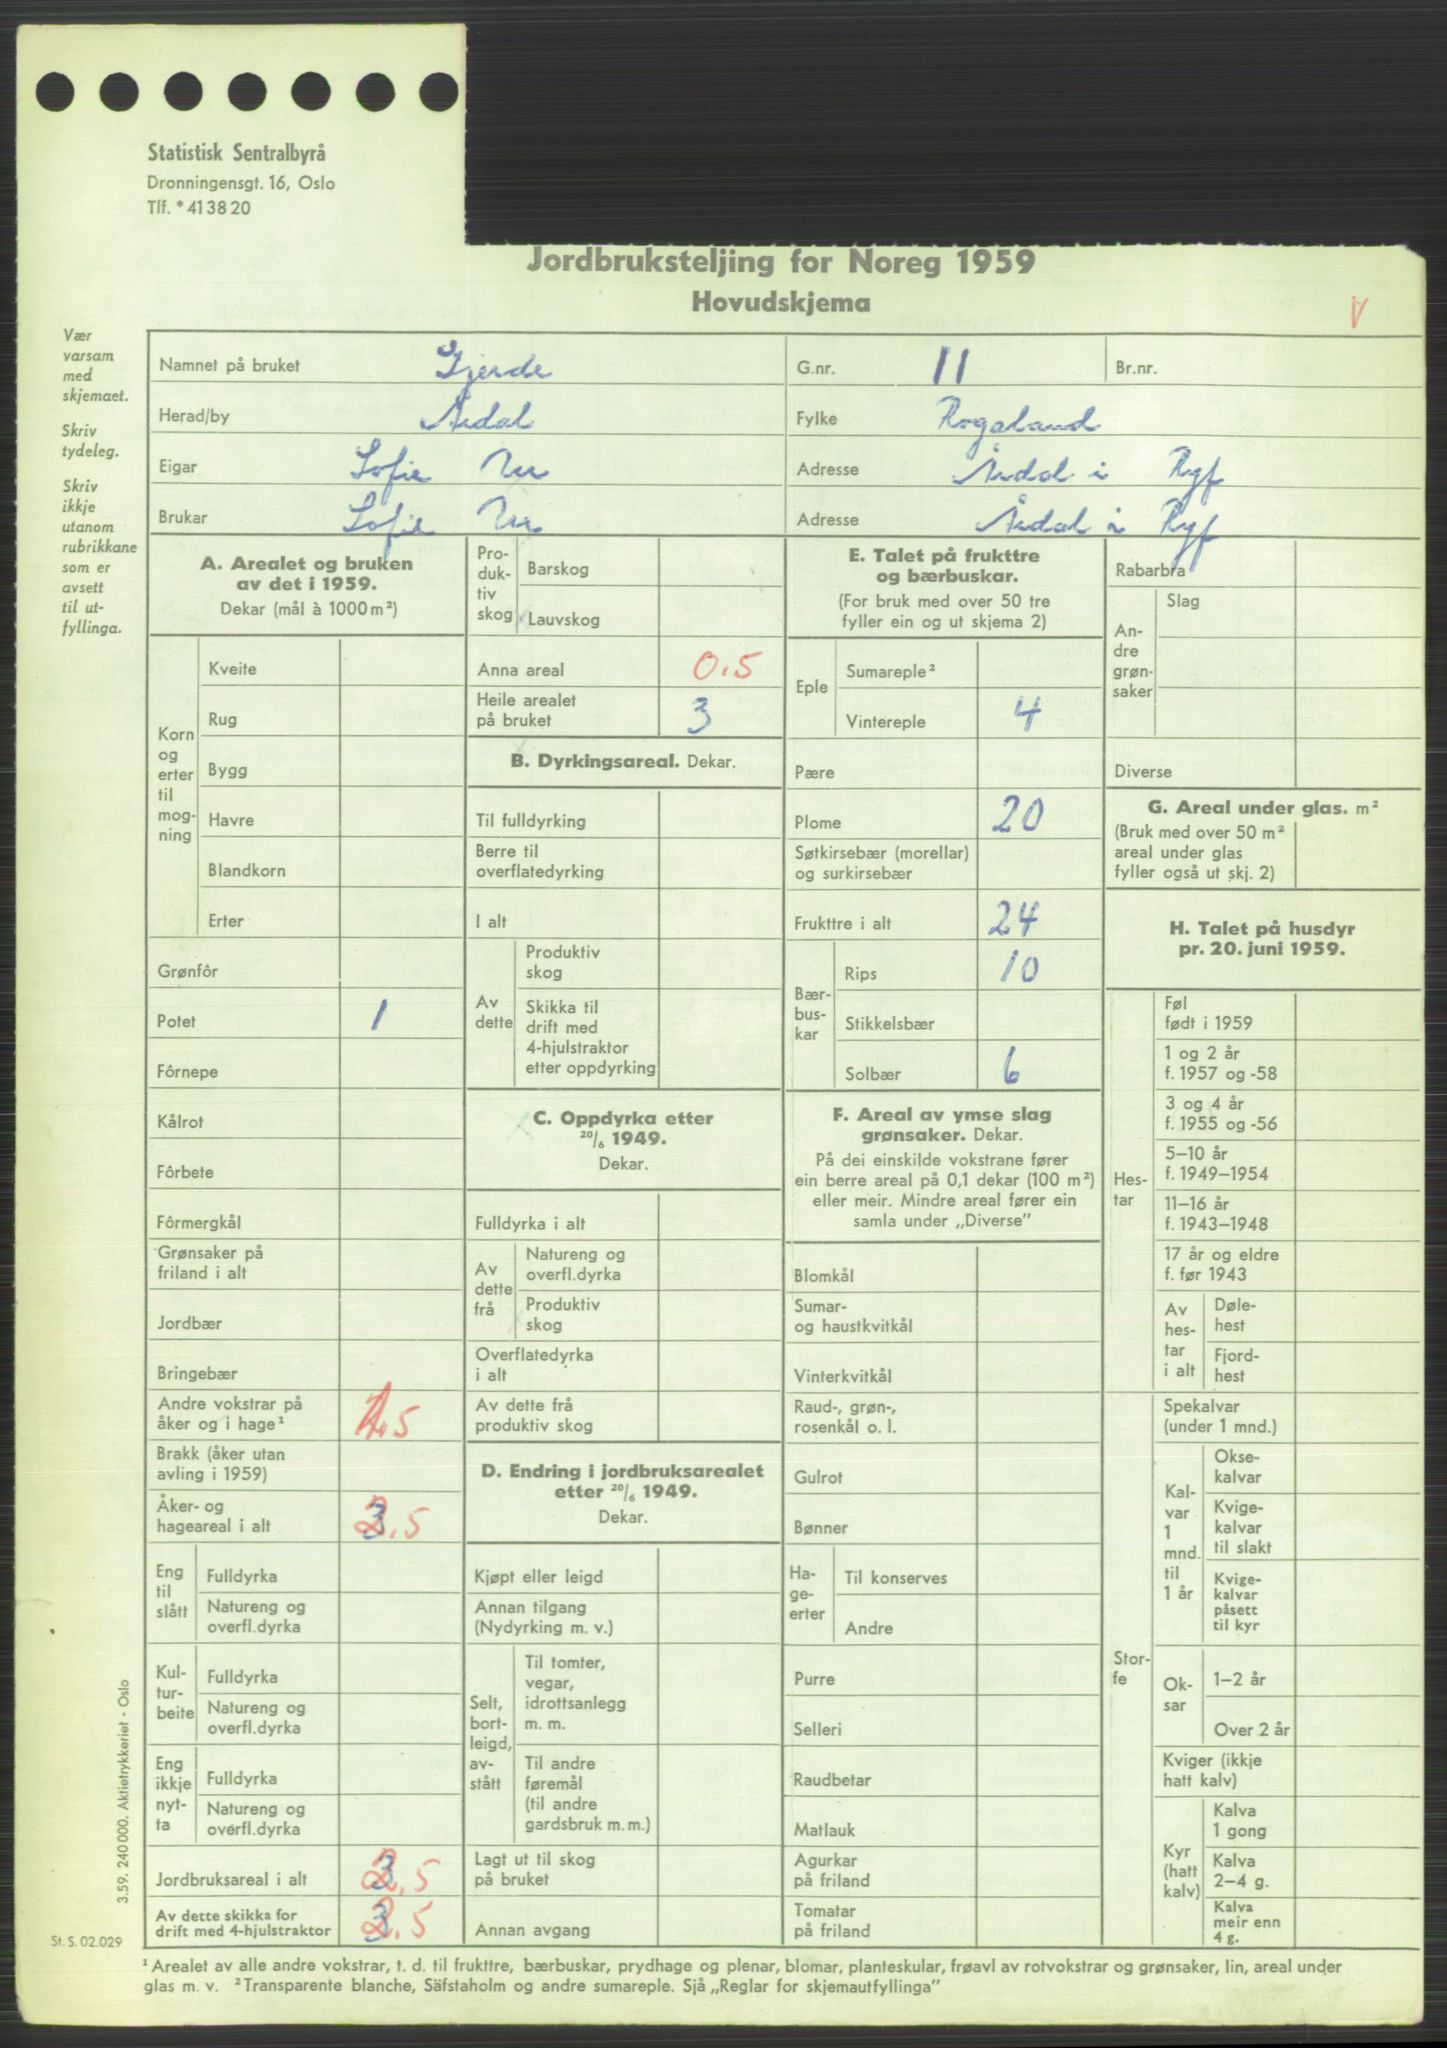 Statistisk Sentralbyrå
Dronningensgt. 16, Oslo
Tlf. *41 38 20
Jordbruksteljing for Noreg 1959
Hovudskjema
V
Vær
varsam
med
skjemaet.
Skriv
tydeleg.
Skriv
ikkje
utanom
rubrikkane
som er
avsett
til ut-
fyllinga.
Namnet på bruket Gjerde G.nr. 11 Br.nr.
Herad/by Årdal Fylke Rogaland
Eigar Sofie Adresse Årdal i Ryf
Brukar Sofie Adresse Årdal i Ryf
A. Arealet og bruken
av det i 1959.
Dekar (mål à 1000 m²)
Korn
og
erter
til
mog-
ning
Kveite
Rug
Bygg
Havre
Blandkorn
Erter
Grønfôr
Potet 1
Fôrnepe
Kålrot
Fôrbete
Fôrmergkål
Grønsaker på
friland i alt
Jordbær
Bringebær
Andre vokstrar på
åker og i hage¹ 1.5
Brakk (åker utan
avling i 1959)
Åker- og
hageareal i alt 2.5
Eng
til
slått
Fulldyrka
Natureng og
overfl.dyrka
Kul-
tur-
beite
Fulldyrka
Natureng og
overfl.dyrka
Eng
ikkje
nyt-
ta
Fulldyrka
Natureng og
overfl.dyrka
Jordbruksareal i alt 2.5
Av dette skikka for
drift med 4-hjulstraktor 2.5
Pro-
duk-
tiv
skog
Barskog
Lauvskog
Anna areal 0.5
Heile arealet
på bruket 3
B. Dyrkingsareal. Dekar.
Til fulldyrking
Berre til
overflatedyrking
I alt
Av
dette
Produktiv
skog
Skikka til
drift med
4-hjulstraktor
etter oppdyrking
C. Oppdyrka etter
20/6 1949.
Dekar.
Fulldyrka i alt
Av
dette
frå
Natureng og
overfl.dyrka
Produktiv
skog
Overflatedyrka
i alt
Av dette frå
produktiv skog
D. Endring i jordbruksarealet
etter 20/6 1949.
Dekar.
Kjøpt eller leigd
Annan tilgang
(Nydyrking m. v.)
Selt,
bort-
leigd,
av-
stått
Til tomter,
vegar,
idrottsanlegg
m. m.
Til andre
føremål
(til andre
gardsbruk m. m.)
Lagt ut til skog
på bruket
Annan avgang
E. Talet på frukttre
og bærbuskar.
(For bruk med over 50 tre
fyller ein og ut skjema 2)
Eple
Sumareple²
Vintereple 4
Pære
Plome 20
Søtkirsebær (morellar)
og surkirsebær
Frukttre i alt 24
Bær-
bus-
kar
Rips 10
Stikkelsbær
Solbær 6
F. Areal av ymse slag
grønsaker. Dekar.
På dei einskilde vokstrane fører
ein berre areal på 0,1 dekar (100 m²)
eller meir. Mindre areal fører ein
samla under „Diverse”
Blomkål
Sumar-
og haustkvitkål
Vinterkvitkål
Raud-, grøn-,
rosenkål o. l.
Gulrot
Bønner
Ha-
ge-
erter
Til konserves
Andre
Purre
Selleri
Raudbetar
Matlauk
Agurkar
på friland
Tomatar
på friland
Rabarbra
An-
dre
grøn-
saker
Slag
Diverse
G. Areal under glas. m²
(Bruk med over 50 m²
areal under glas
fyller også ut skj. 2)
H. Talet på husdyr
pr. 20. juni 1959.
Hes-
tar
Føl
født i 1959
1 og 2 år
f. 1957 og -58
3 og 4 år
f. 1955 og -56
5–10 år
f. 1949–1954
11–16 år
f. 1943–1948
17 år og eldre
f. før 1943
Av
hes-
tar
i alt
Døle-
hest
Fjord-
hest
Stor-
fe
Spekalvar
(under 1 mnd.)
Kal-
var
1
mnd.
til
1 år
Okse-
kalvar
Kvige-
kalvar
til slakt
Kvige-
kalvar
påsett
til kyr
Ok-
sar
1–2 år
Over 2 år
Kviger (ikkje
hatt kalv)
Kyr
(hatt
kalv)
Kalva
1 gong
Kalva
2–4 g.
Kalva
meir enn
4 g.
3.59. 240 000. Aktietrykkeriet - Oslo
St. S. 02.029
¹ Arealet av alle andre vokstrar, t. d. til frukttre, bærbuskar, prydhage og plenar, blomar, planteskular, frøavl av rotvokstrar og grønsaker, lin, areal under
glas m. v. ² Transparente blanche, Säfstaholm og andre sumareple. Sjå „Reglar for skjemautfyllinga”